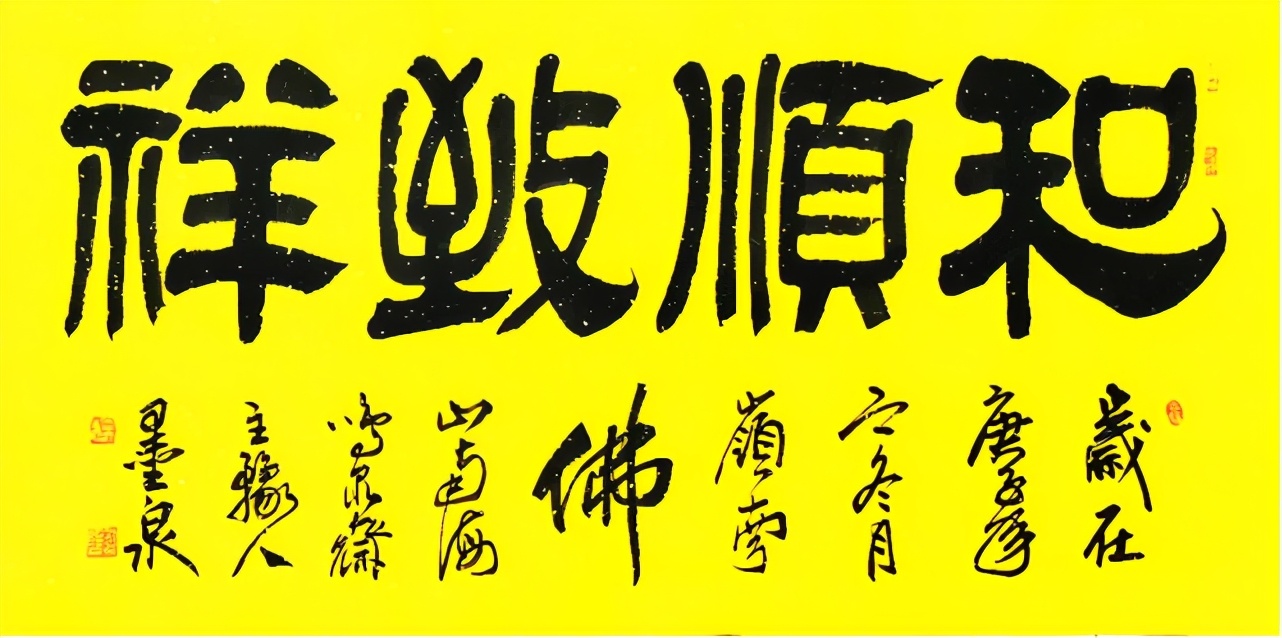 和順致祥
歲在
庚子年
之冬月
嶺南
佛
山南海
鳴泉齋
主豫人
墨泉